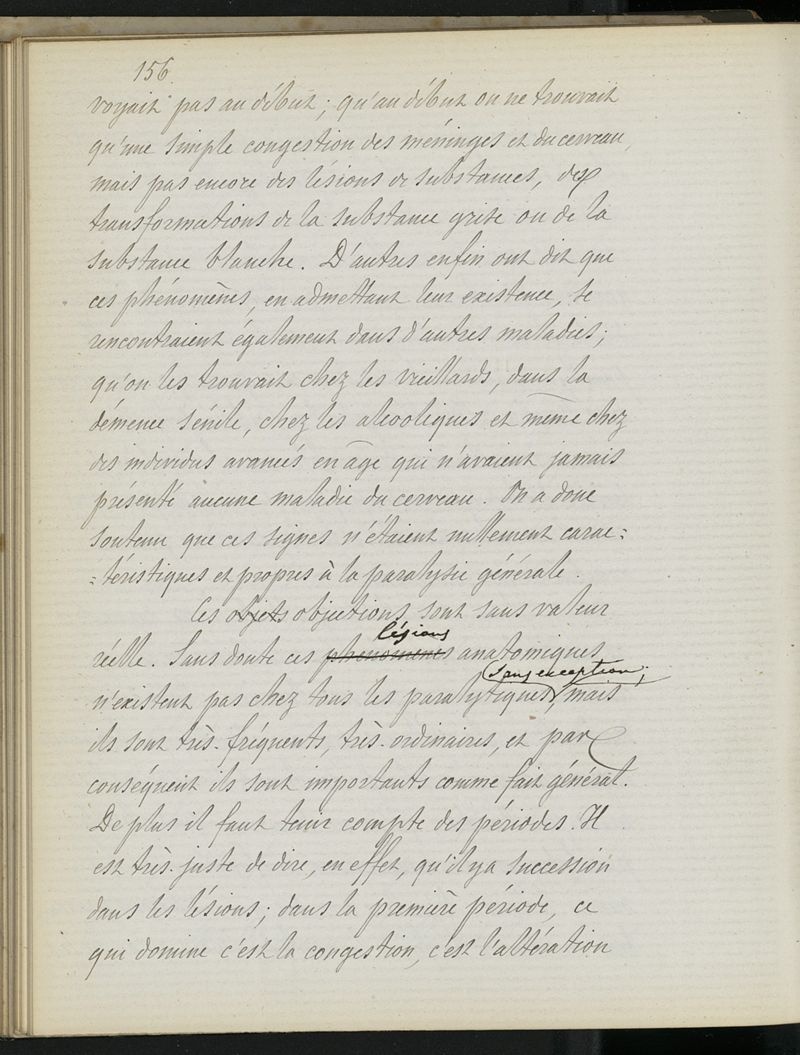 156
voyait pas au début ; qu'au début on ne trouvait
qu'une simple congestion des méninges et du cerveau,
mais pas encore des lésions de substances, des
transformations de la substance grise ou de la
substance blanche. D'autres enfin ont dit que
ces phénomènes, en admettant leur existence, se
rencontraient également dans d'autres maladies ;
qu'on les trouvait chez les vieillards, dans la
démence sénile, chez les alcooliques et même chez
des individus avancés en âge qui n'avaient jamais
présenté aucune maladie du cerveau. On a donc
soutenu que ces signes n'étaient nullement carac=
=téristiques et propres à la paralysie générale.
Ces objets objections sont sans valeur
lésions
réelle. Sans doute ces phénomènes anatomiques
sans exception ;
n'existent pas chez tous les paralytiques, mais
ils sont très-fréquents, très-ordinaires, et par
conséquent ils sont importants comme fait général.
De plus il faut tenir compte des périodes. Il
est très-juste de dire, en effet, qu'il y a succession
dans les lésions ; dans la première période, ce
qui domine c'est la congestion, c'est l'altération